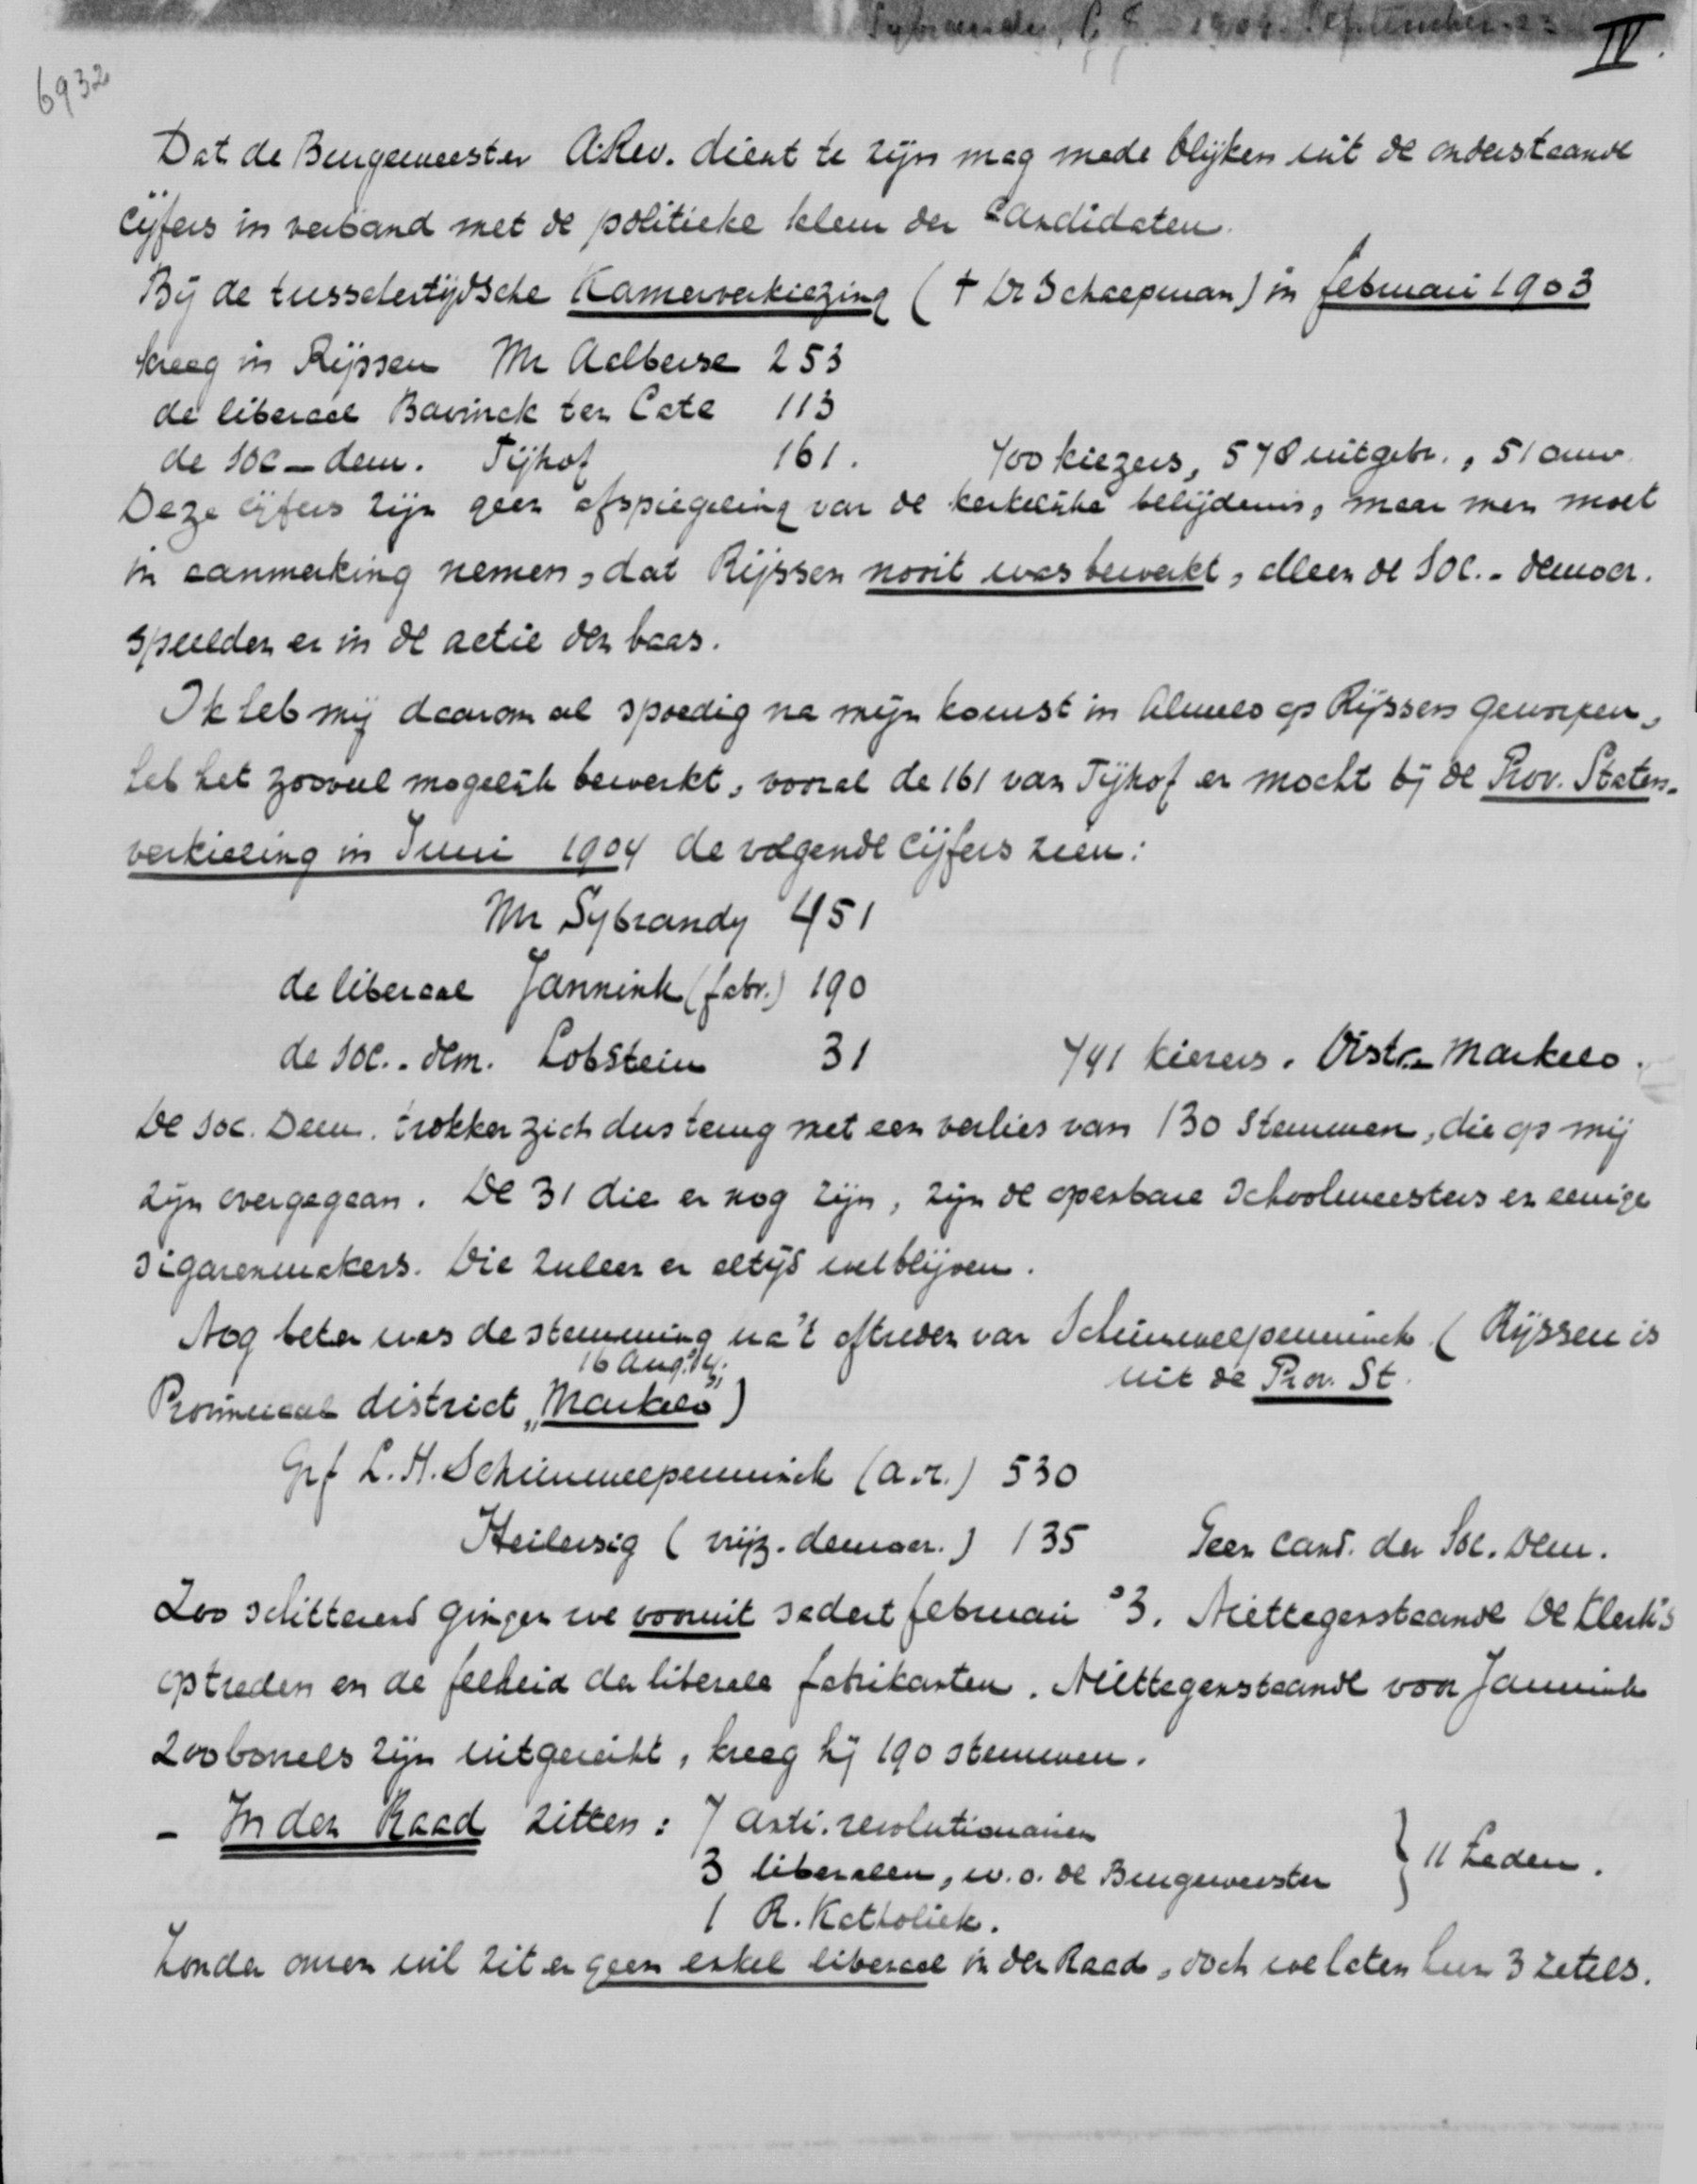 Sybrandy, P. S. 1904. September 23
IV.
6932
Dat de Burgemeester A.Rev. dient te zijn mag mede blijken uit de onderstaande
cijfers in verband met de politieke kleur der candidaten.
Bij de tusschentijdsche Kamerverkiezing († Dr Schaepman) in februari 1903
kreeg in Rijssen Mr Aalberse 253
de liberaal Bavinck ten Cate 113
de soc-dem. Tijhof 161. 700 kiezers, 578 uitgebr., 51 onw.
Deze cijfers zijn geen afspiegeling van de kerkelijke belijdenis, maar men moet
in aanmerking nemen, dat Rijssen nooit was bewerkt, alleen de Soc.-democr.
speelden er in de actie den baas.
Ik heb mij daarom al spoedig na mijn komst in Almelo op Rijssen geworpen,
heb het zooveel mogelijk bewerkt, vooral de 161 van Tijhof en mocht bij de Prov. Staten-
verkiezing in Juni 1904 de volgende cijfers zien:
Mr Sybrandy 451
de liberaal Jannink (fabr.) 190
de soc.-dem. Lobstein 31 741 kiezers. Distr. Markelo.
De soc. Dem. trokken zich dus terug met een verlies van 130 stemmen, die op mij
zijn overgegaan. De 31 die er nog zijn, zijn de openbare schoolmeesters en eenige
sigarenmakers. Die zullen er altijd wel blijven.
Nog beter was de stemming na 't aftreden van Schimmelpenninck (Rijssen is
16 Aug. '4. uit de Prov. St.
Provinciaal district „Markelo”)
Grf L. H. Schimmelpenninck (a.r.) 530
Heilersig (vrijz. democr.) 135 Geen cand. der Soc. Dem.
Zoo schitterend gingen we vooruit sedert februari '3. Niettegenstaande De Klerk's
optreden en de felheid der liberale fabrikanten. Niettegenstaande voor Jannink
200 borrels zijn uitgereikt, kreeg hij 190 stemmen.
- In den Raad zitten: 7 anti-revolutionairen
3 liberalen, w.o. de Burgemeester } 11 Leden.
1 R. Katholiek.
Zonder onzen wil zit er geen enkel liberaal in den Raad, doch we laten hun 3 zetels.